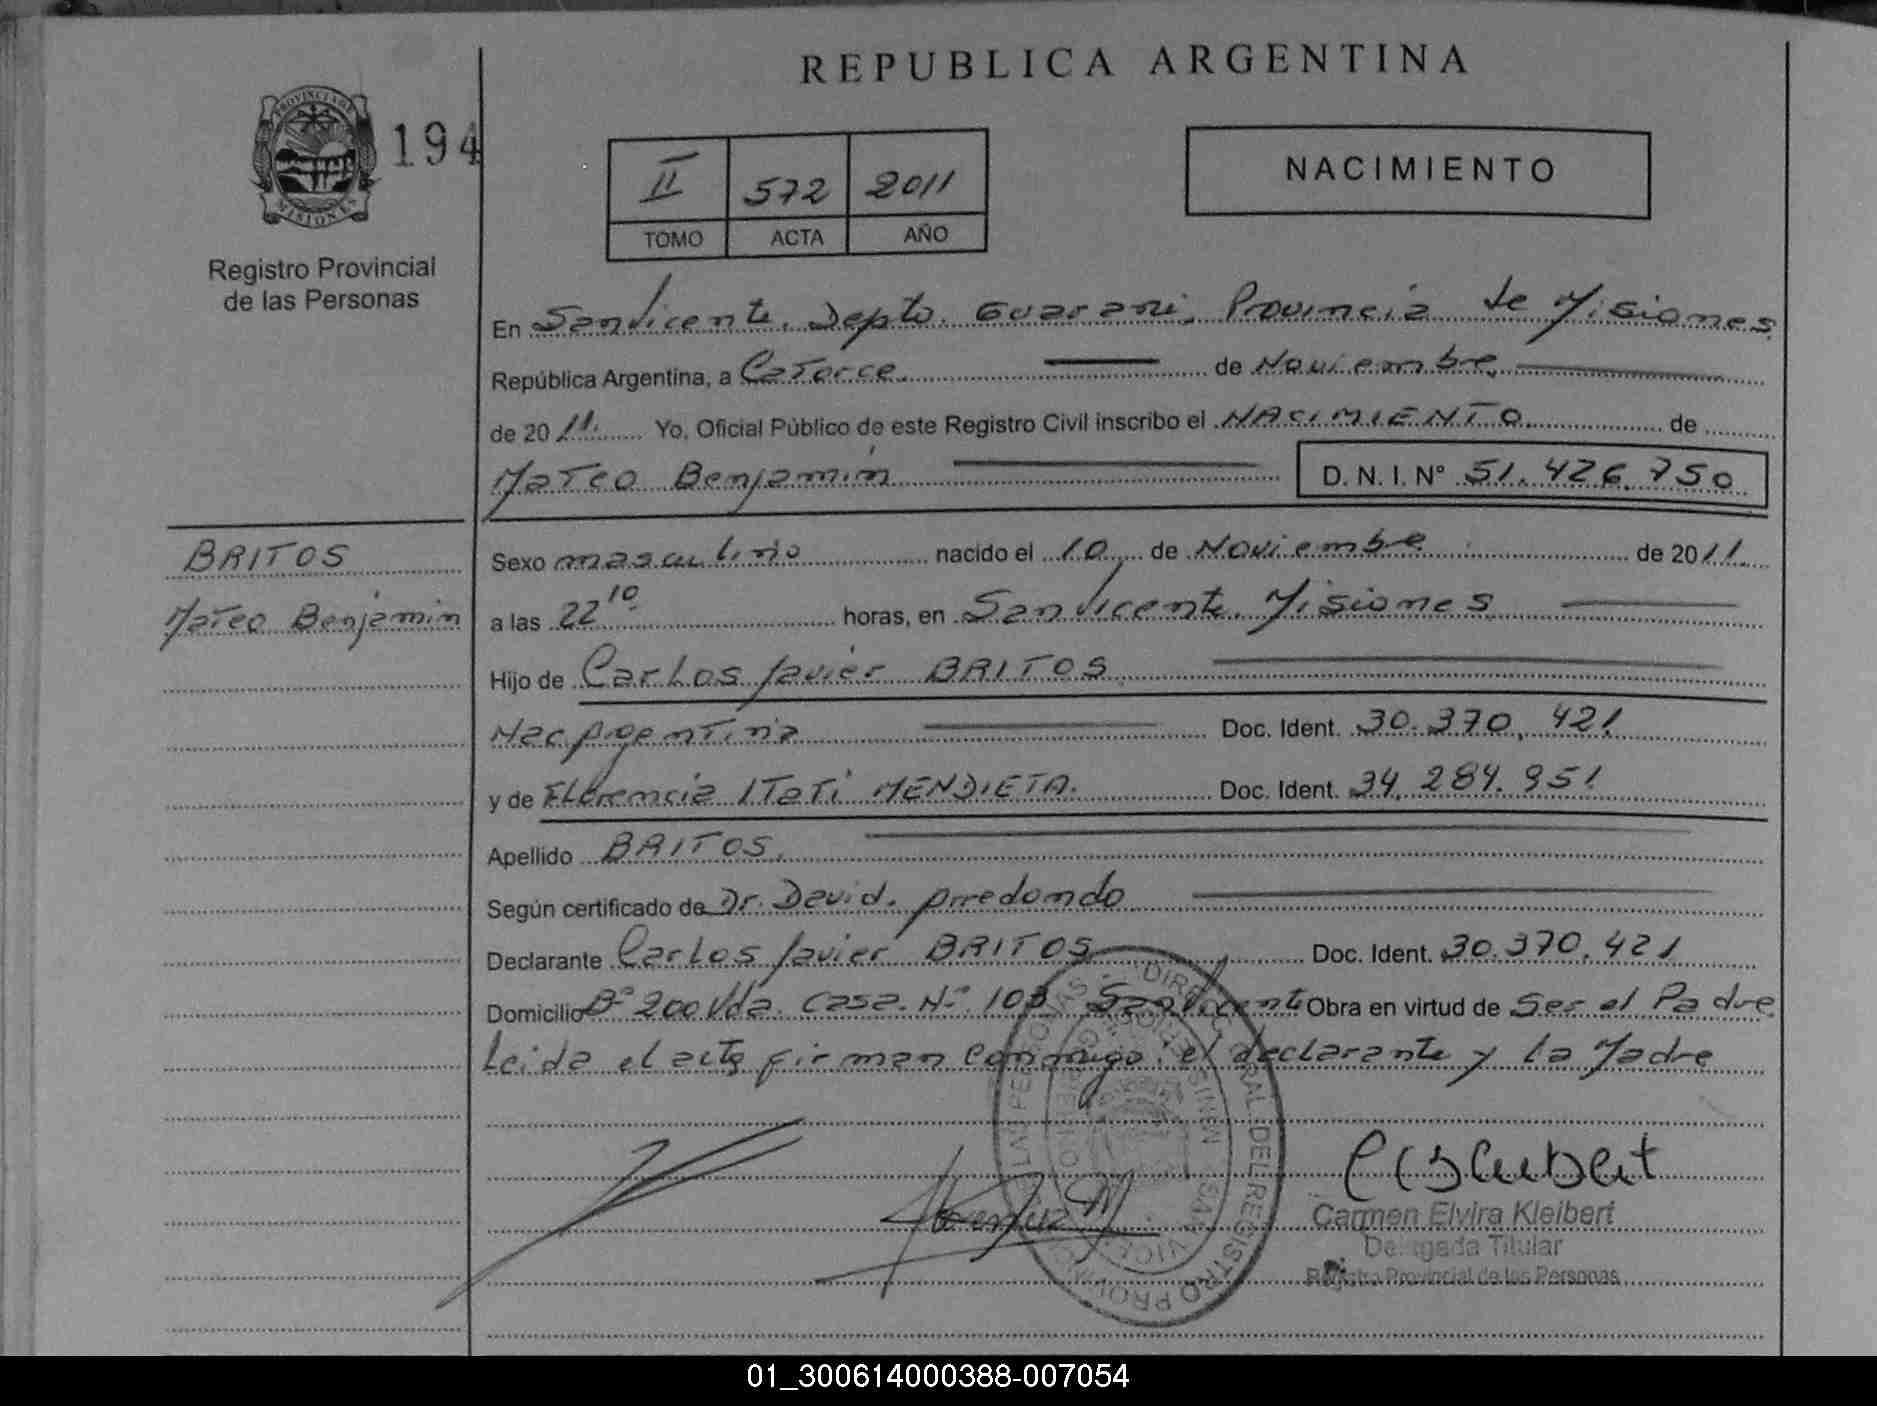 REPUBLICA ARGENTINA
PROVINCIA DE
MISIONES
194
Registro Provincial
de las Personas
II 572 2011
TOMO ACTA AÑO
NACIMIENTO
En San Vicente, Depto. Guarani, Provincia de Misiones
República Argentina, a Catorce de Noviembre
de 2011. Yo, Oficial Público de este Registro Civil inscribo el NACIMIENTO de
Mateo Benjamín D. N. I. Nº 51.426.750
BRITOS
Mateo Benjamin
Sexo masculino nacido el 10 de Noviembre de 2011
a las 22 10 horas, en San Vicente, Misiones
Hijo de Carlos Javier BRITOS
Nac Argentina Doc. Ident. 30.370.421
y de Florencia ITATI MENDIETA. Doc. Ident. 34.284.951
Apellido BRITOS.
Según certificado de Dr. David. Arredondo
Declarante Carlos Javier BRITOS Doc. Ident. 30.370.421
Domicilio Bº 200 Vda. Casa. Nº 103 San Vicente Obra en virtud de Ser el Padre
Leida el acta firman conmigo, el declarante y la Madre
Carmen Elvira Kleibert
Delegada Titular
Registro Provincial de las Personas
01_300614000388-007054